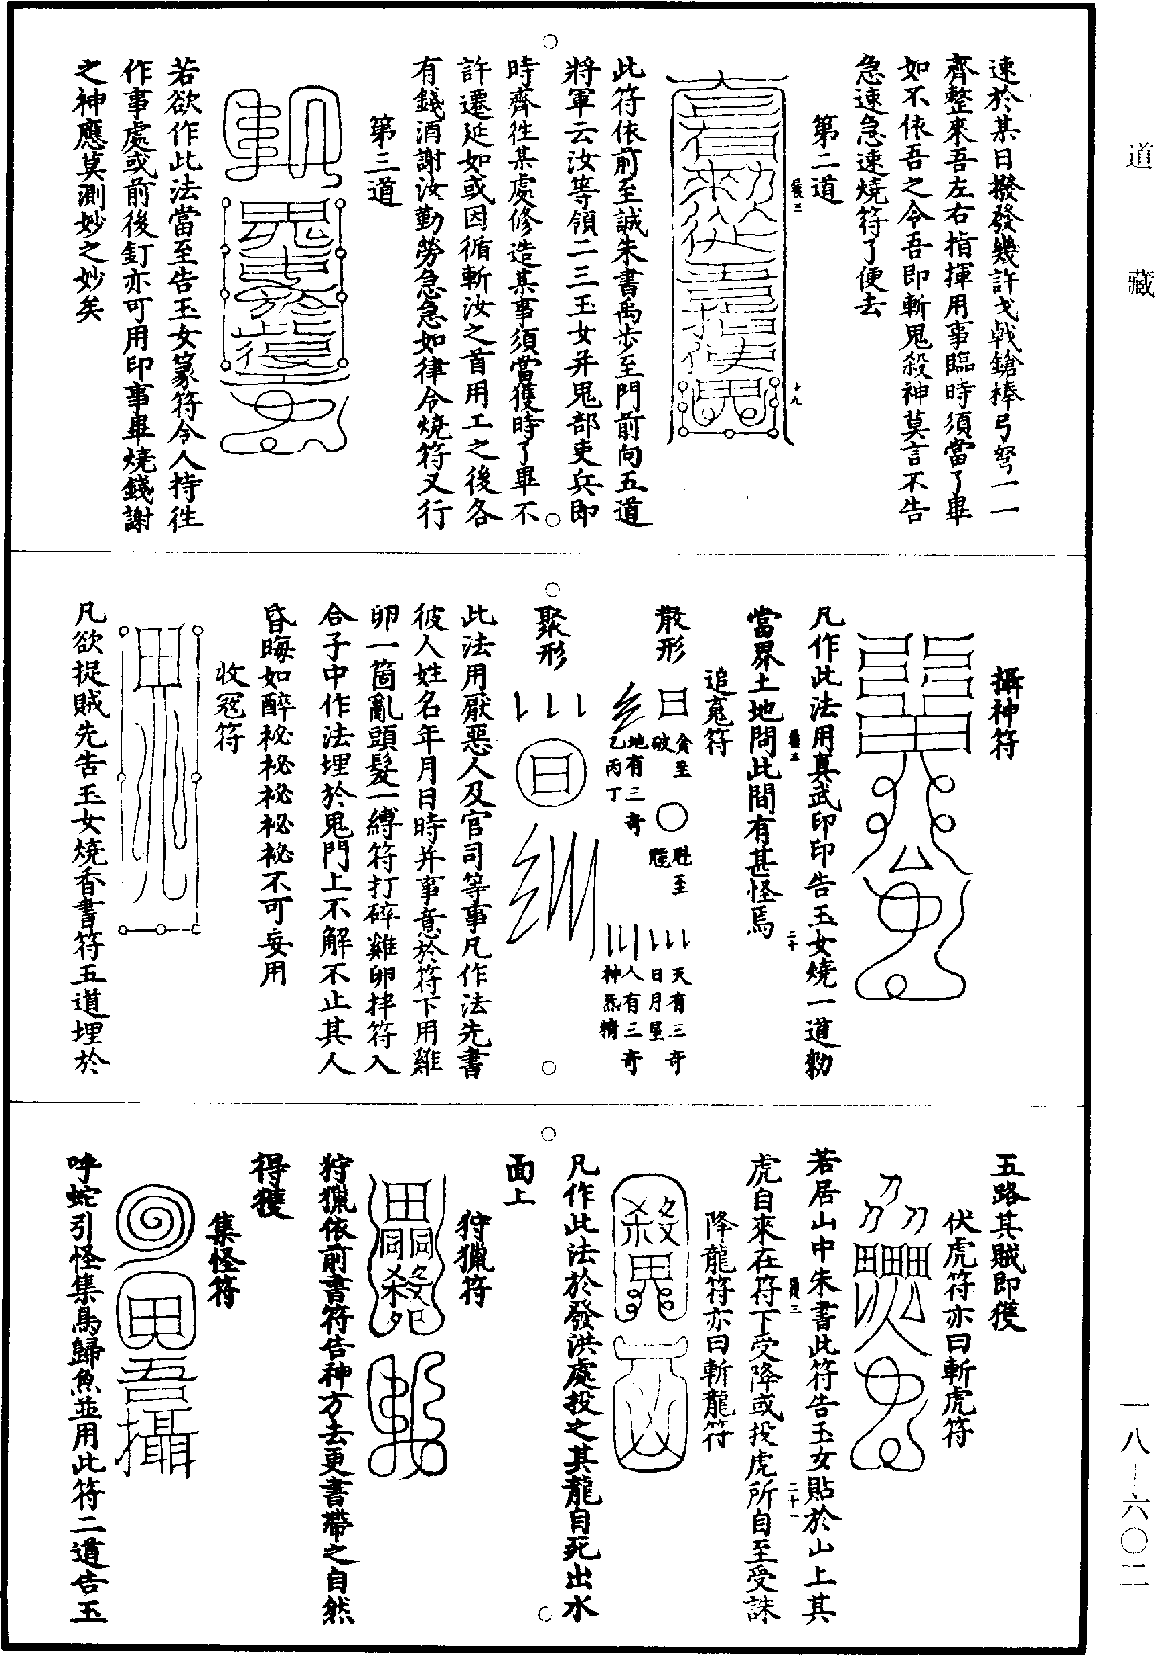 道藏
一八—六〇二
速於某日撥發幾許戈戟鎗棒弓弩一一
齊整來吾左右指揮用事臨時須當了畢
如不依吾之令吾即斬鬼殺神莫言不告
急速急速燒符了便去
第二道
此符依前至誠朱書禹步至門前向五道
將軍云汝等領二三玉女并鬼部吏兵即
時齊徃某處修造某事須當獲時了畢不
許遷延如或因循斬汝之首用工之後各
有錢酒謝汝勤勞急急如律令燒符又行
第三道
若欲作此法當至告玉女篆符令人持徃
作事處或前後釘亦可用印事畢燒錢謝
之神應莫測妙之妙矣
攝神符
凡作此法用真武印印告玉女燒一道勑
當界土地問此間有甚怪焉
追寃符
散形
貪至
破
魁至
天有三奇
日月星
地有三奇
乙丙丁
人有三奇
神炁精
聚形
此法用厭惡人及官司等事凡作法先書
彼人姓名年月日時并事意於符下用雞
卵一箇亂頭髮一縛符打碎雞卵拌符入
合子中作法埋於鬼門上不解不止其人
昏晦如醉祕祕祕祕祕不可妄用
收冦符
凡欲捉賊先告玉女燒香書符五道埋於
五路其賊即獲
伏虎符亦曰斬虎符
若居山中朱書此符告玉女貼於山上其
虎自來在符下受降或投虎所自至受誅
降龍符亦曰斬龍符
凡作此法於發洪處投之其龍自死出水
面上
狩獵符
狩獵依前書符告神方去更書帶之自然
得獲
集怪符
呼蛇引怪集鳥歸魚並用此符二道告玉